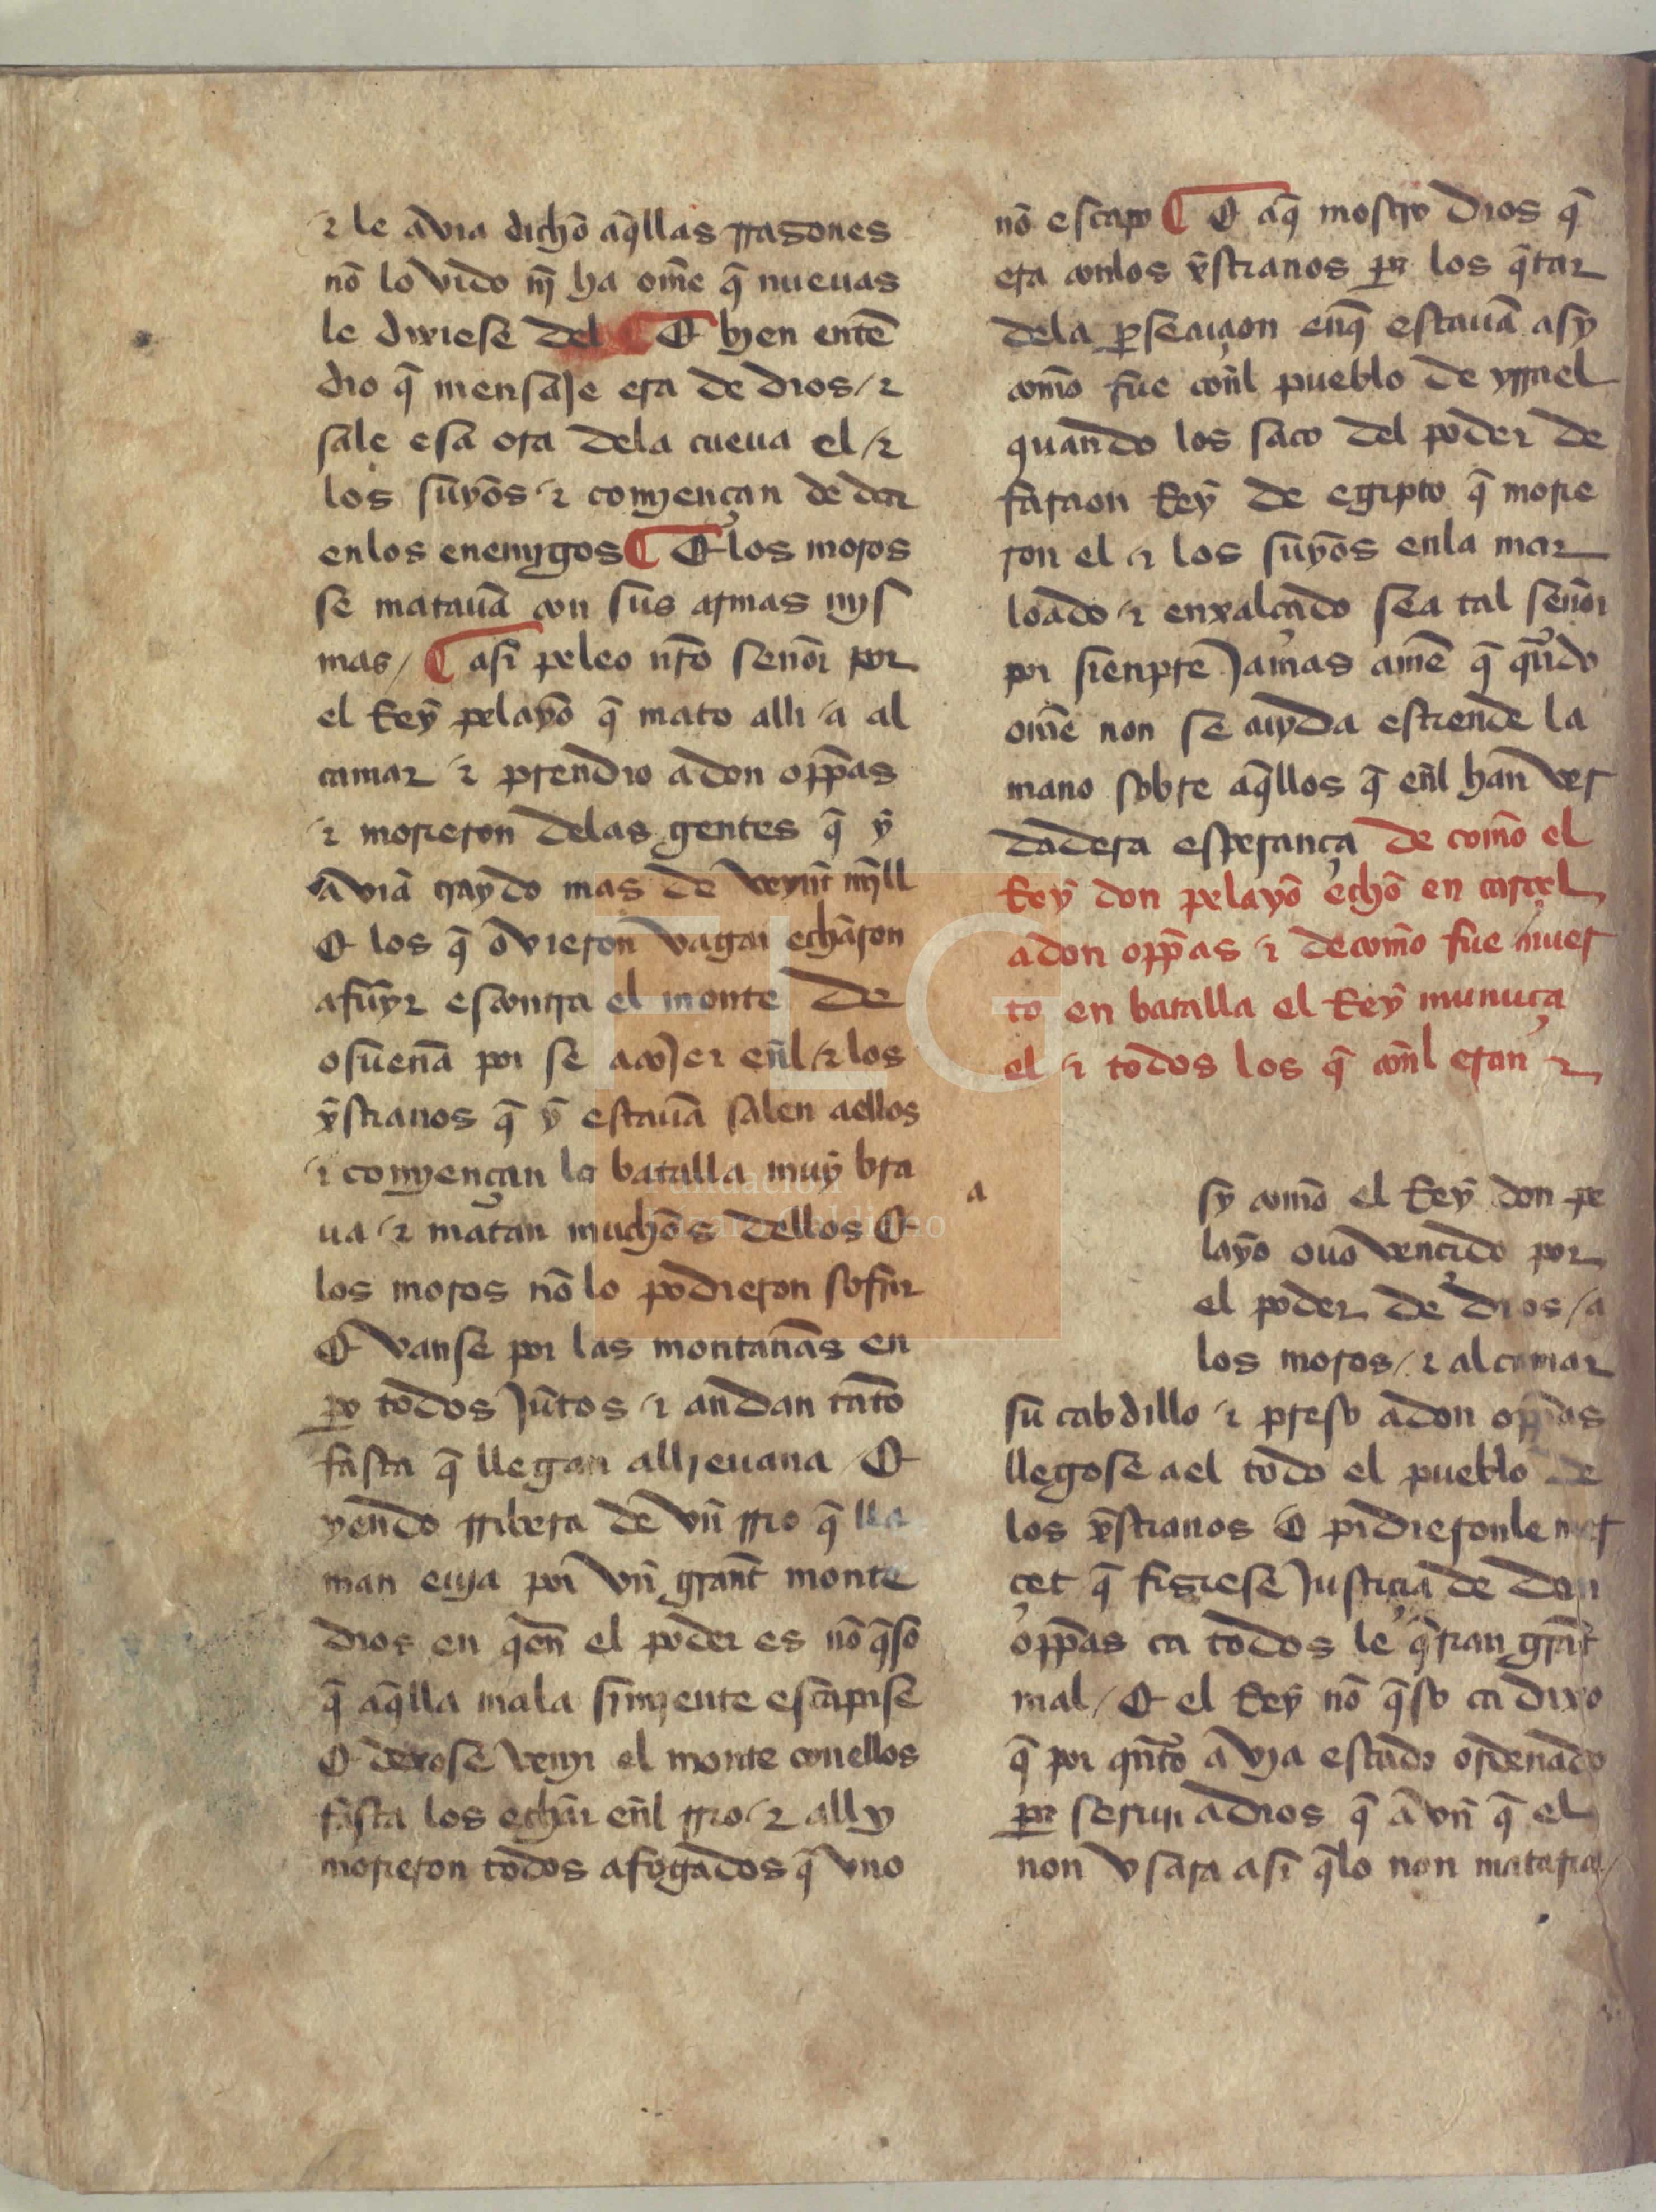 ⁊ le avia dichō aq̄llas rrazones
nō lo vido nj̄ ha om̄e q̄ nueuas
le dixiese del ¶ E bien entē
dio q̄ mensaje era de dios / ⁊
sale esa ora dela cueua el / ⁊
los suyōs ⁊ comjençan de dar
enlos enemjgos ¶ E los moros
se matauā con sus armas mjs
mas / ¶ asi peleo nr̄o señor por
el Rey pelayō q̄ mato alli / a al
camar ⁊ prendio adon opp̄as
⁊ morieron delas gentes q̄ y
aviā traydo mas de veynt̄ mjll
E los q̄ ovieron vagar echaron
afuyr escontra el monte de
osueña por se acojer en̄l / ⁊ los
xp̄stianos q̄ y estauā salen aellos
⁊ comjençan la batalla muy bra
ua / ⁊ matan muchōs dellos E
los moros nō lo podieron sofrir
E vanse por las montañas en
pero todos jūtos ⁊ andan tātō
fasta q̄ llegan allieuana E
yendo rribera de vn̄ rrio q̄ lla
man eujа por vn̄ grant̄ monte
dios en qen̄ el poder es nō q̄so
q̄ aq̄lla mala simjente escapase
E dexose venjr el monte conellos
fasta los echar en̄l rrio / ⁊ ally
morieron todos afogados q̄ vno
nō escapo ¶ E aq̄ mostro dios q̄
era conlos xp̄stianos par los q̄tar
dela p̄secuçion enq̄ estauā asy
comō fue con̄l pueblo de yrrael
quando los saco del poder de
faraon Rey de egipto q̄ morie
ron el ⁊ los suyōs enla mar
loado ⁊ enxalçado sea tal señor
por sienpre jamas amē q̄ qn̄do
om̄e non se cuyda estiende la
mano sobre aq̄llos q̄ en̄l han ver
dadera esperança de comō el
Rey don pelayō echō en carçel
adon opp̄as ⁊ decomō fue muer
to en batalla el Rey munuça
el ⁊ todos los q̄ con̄l eran ⁊
a
sy comō el Rey don pe
layō ouō vençido por
el poder de dios / a
los moros / ⁊ alcamar
su cabdillo ⁊ preso adon opp̄as
llegose ael todo el pueblo de
los xp̄stianos E pidieronle mer
çet q̄ fiziese justiçia de don
opp̄as ca todos le q̄rian grāt
mal / E el Rey nō q̄so ca dixo
q̄ por qn̄to avja estado ordenado
par serujr adios q̄ avn̄ q̄ el
non vsara asi q̄lo non mataria /
FLG
Fundación
Lázaro Galdiano